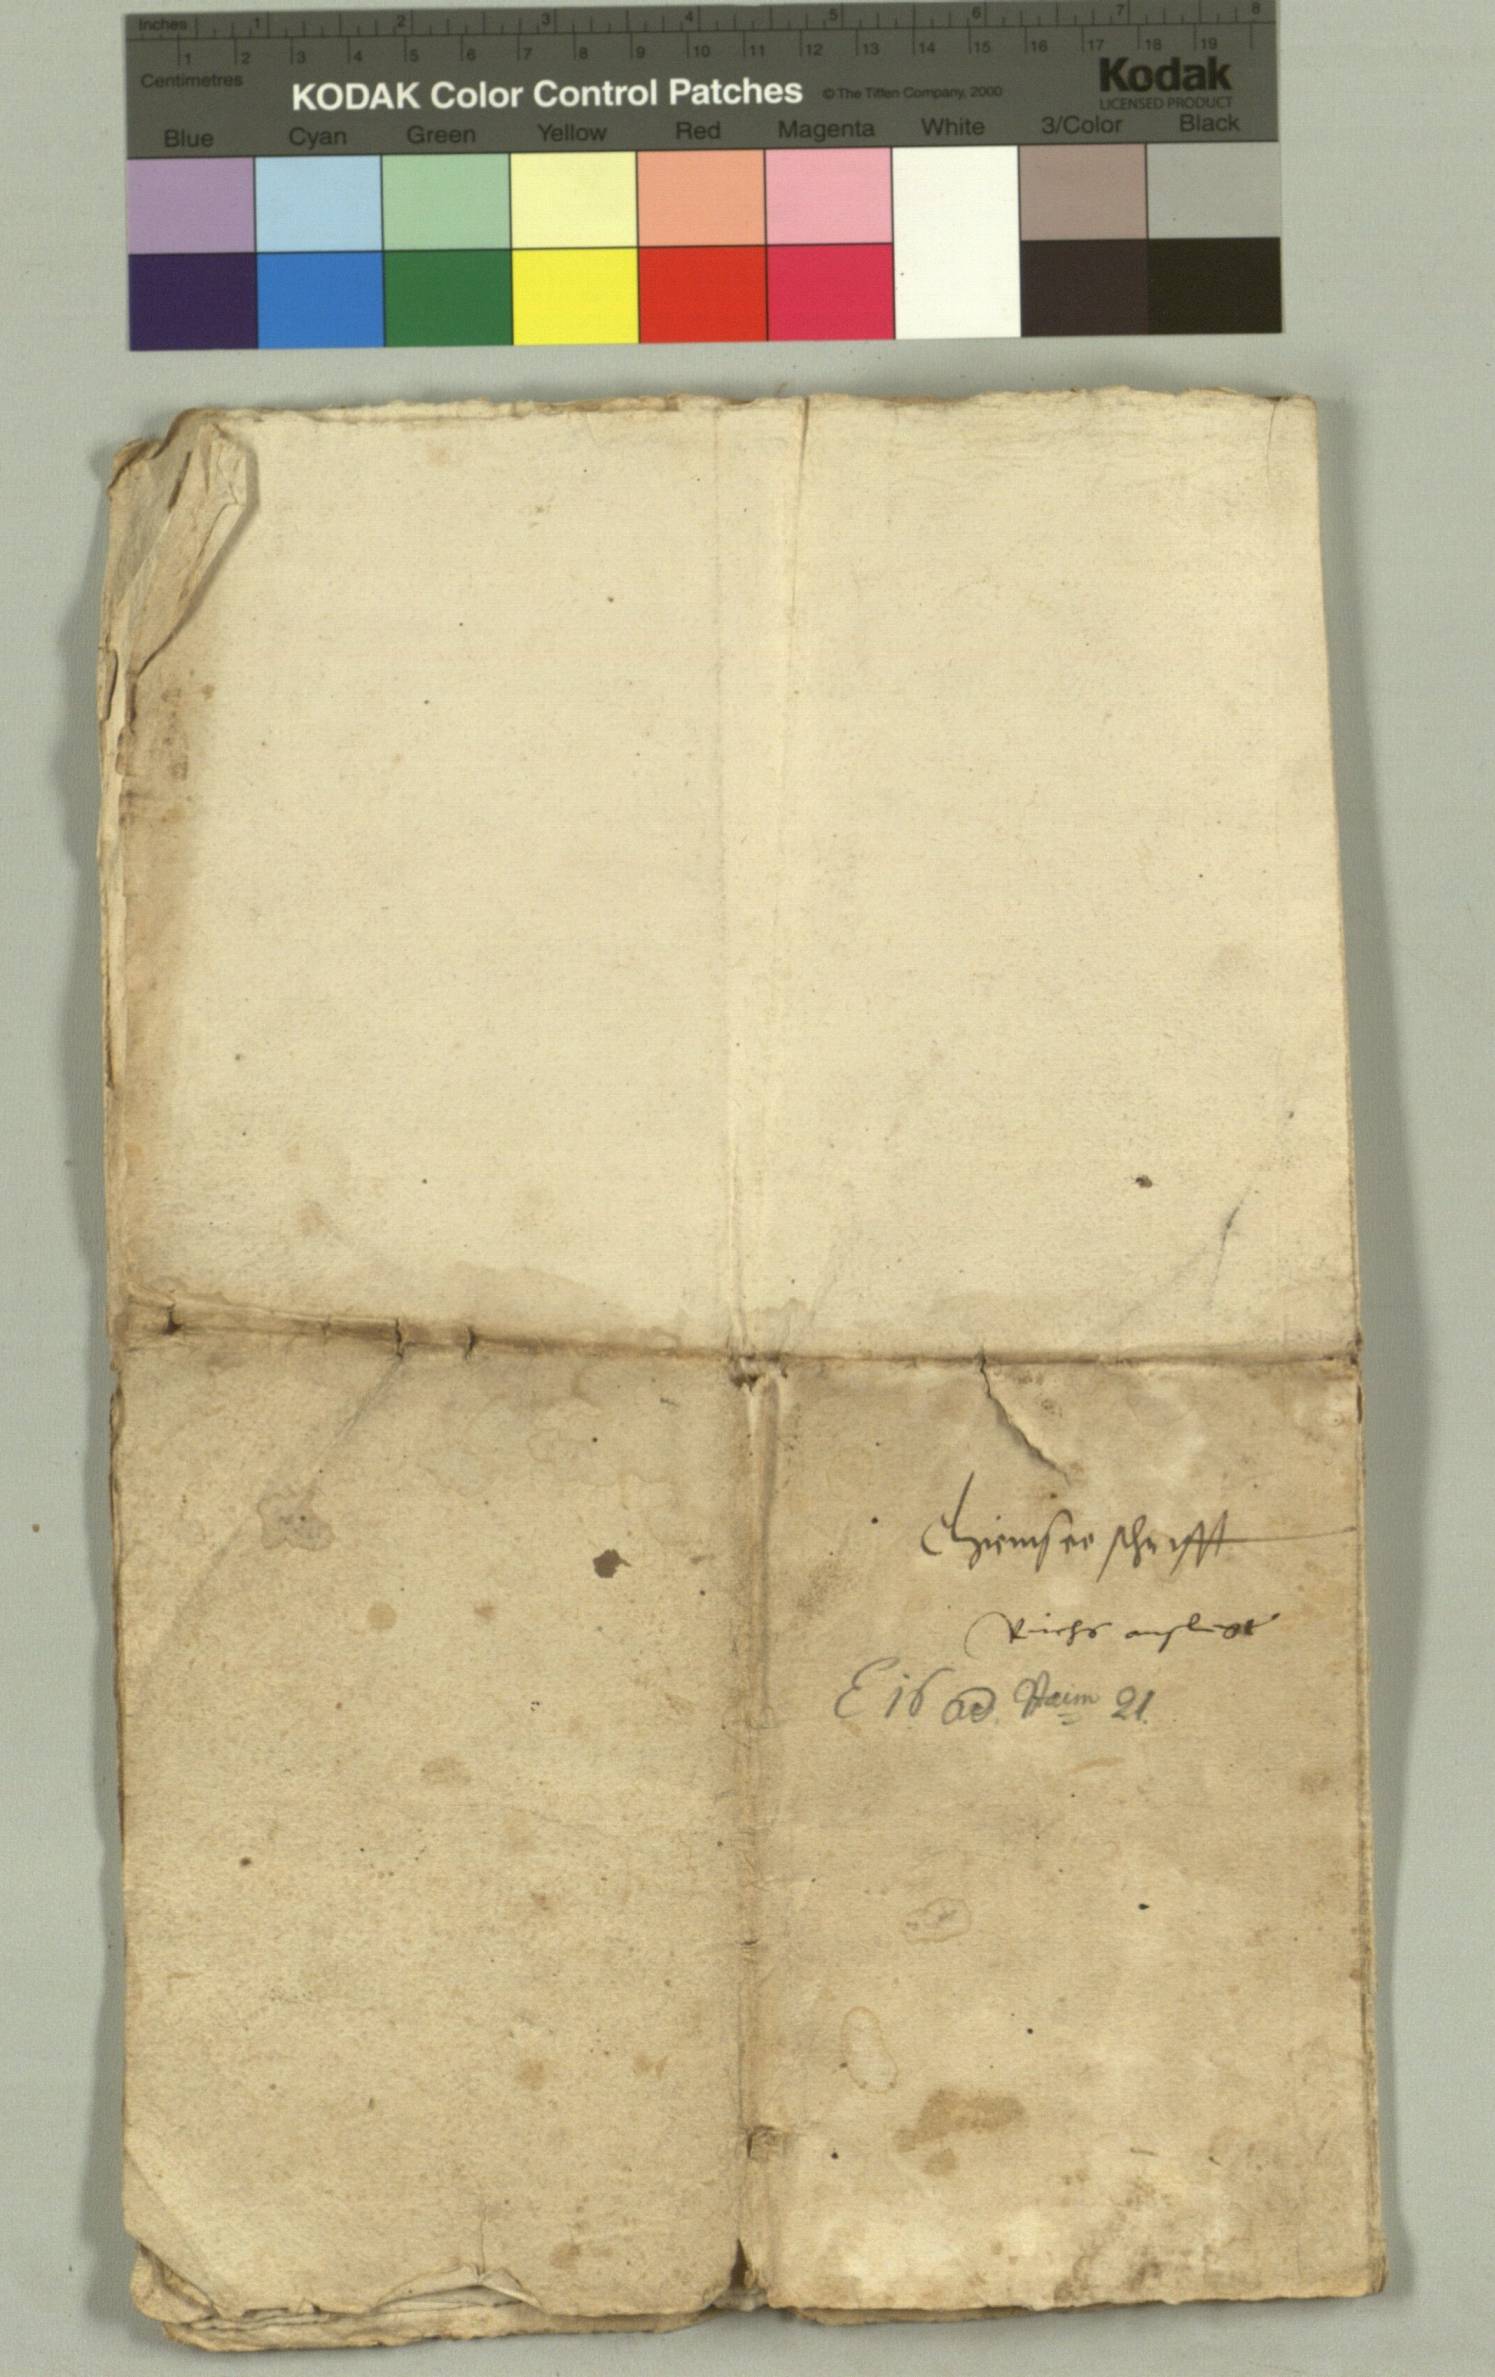 Inches 1 2 3 4 5 6 7 8
1 2 3 4 5 6 7 8 9 10 11 12 13 14 15 16 17 18 19
Centimetres
KODAK Color Control Patches © The Tiffen Company, 2000 Kodak
LICENSED PRODUCT
Blue Cyan Green Yellow Red Magenta White 3/Color Black
Chiemsee schrifft
E 16 ad 21.